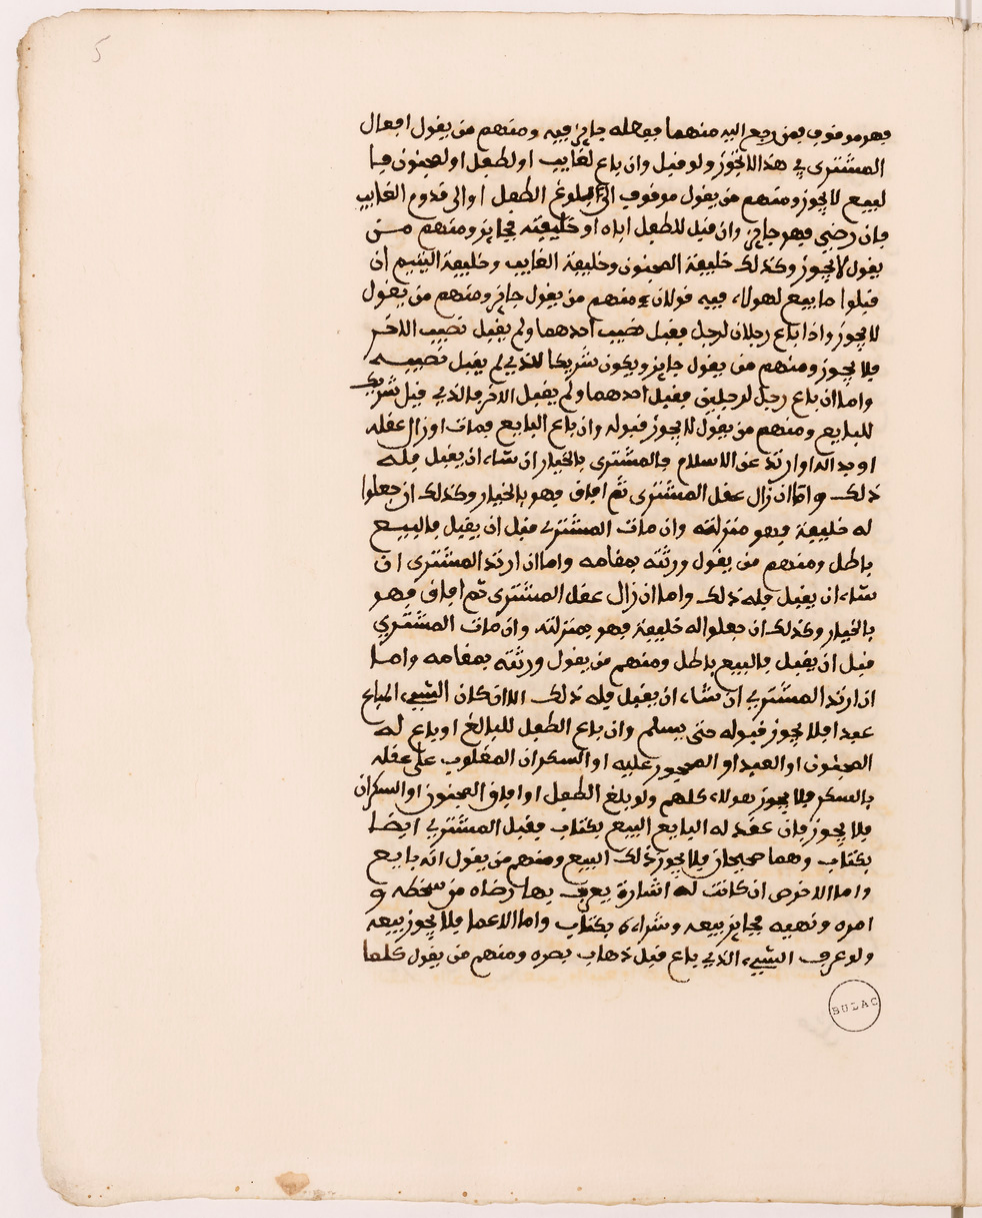 5
فهو موقوف فمن رجع اليه منهما ففعله جايز فيه ومنهم من يقول افعال
المشترى في هذا لا تجوز ولو قبل وان باع لغايب او لطفل او لمجنون فا
لبيع لا يجوز ومنهم من يقول موقوف الى بلوغ الطفل او الى قدوم الغايب
فان رضي فهو جايز وان قبل للطفل اباه او خليفته فجايز ومنهم مـن
يقول لا يجوز وكذلك خليفة المجنون وخليفة الغايب وخليفة اليتيم ان
قبلوا ما بيع لهولاء فيه قولان ومنهم من يقول جايز ومنهم من يقول
لا يجوز واذا باع رجلان لرجل فقبل نصيب احدهما ولم يقبل نصيب الاخـر
فلا يجوز ومنهم من يقول جايز ويكون شريكا للذي لم يقبل نصيبـه
واما ان باع رجل لرجلين فقبل احدهما ولم يقبل الاخر فالذي قبل شريك
للبايع ومنهم من يقول لا يجوز قبوله وان باع البايع فمات او زال عقله
او بدا له او ارتد عن الاسلام فالمشترى بالخيار ان شاء ان يقبل فله
ذلك واما ان زال عقل المشترى ثم افاق فهو بالخيار وكذلك ان جعلوا
له خليفة فهو منزلته وان مات المشتري قبل ان يقبل فالبيـع
باطل ومنهم من يقول ورثته بمقامه واما ان ارتد المشترى ان
شاء ان يقبل فله ذلك واما ان زال عقل المشترى ثم افاق فهـو
بالخيار وكذلك ان جعلوا له خليفة فهو بمنزلته وان مات المشتري
قبل ان يقبل فالبيع باطل ومنهم من يقول ورثته بمقامه وامـا
ان ارتد المشتري ان شاء ان يقبل فله ذلك الا ان كان الشيء المباع
عبدا فلا يجوز قبوله حتى يسلم وان باع الطفل للبالغ او باع له
المجنون او العبد او المحجور عليه او السكران المغلوب على عقله
بالسكر فلا يجوز هولاء كلهم ولو بلغ الطفل او افاق المجنون او السكران
فلا يجوز فان عقد له البايع البيع بكتاب فقبل المشتري ايضـا
بكتاب وهما صحيحان فلا يجوز ذلك البيع ومنهم من يقول انه بايع
واما الاخرص ان كانت له اشارة يعرف بها رضاه من سخطه و
امره ونهيه فجايز بيعه وشراءه بكتاب واما الاعما فلا يجوز بيعه
ولو عرف الشيء الذي باع قبل ذهاب بصره ومنهم من يقول كلما
BULAC